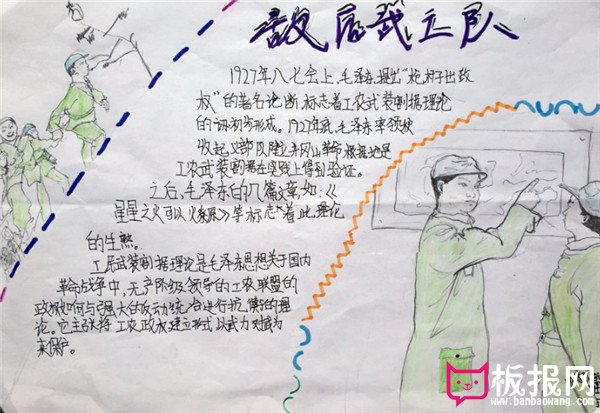 敌后武工队
1927年八七会上,毛泽东提出“枪杆子出政
权”的著名论断,标志着工农武装割据理论
的初步形成。1927年底,毛泽东率领秋
收起义部队建立井冈山革命根据地是
工农武装割据在实践上得到验证。
之后,毛泽东的几篇文章,如:《
星星之火可以燎原》等标志着此理论
的生熟。
工民武装割据理论是毛泽东思想关于国内
革命战争中,无产阶级领导的工农联盟的
政权如何与强大的反动统治进行抗衡的理
论。它主张将工农政权建立形式以武力
来保护。
板报网
www.banbaowang.com